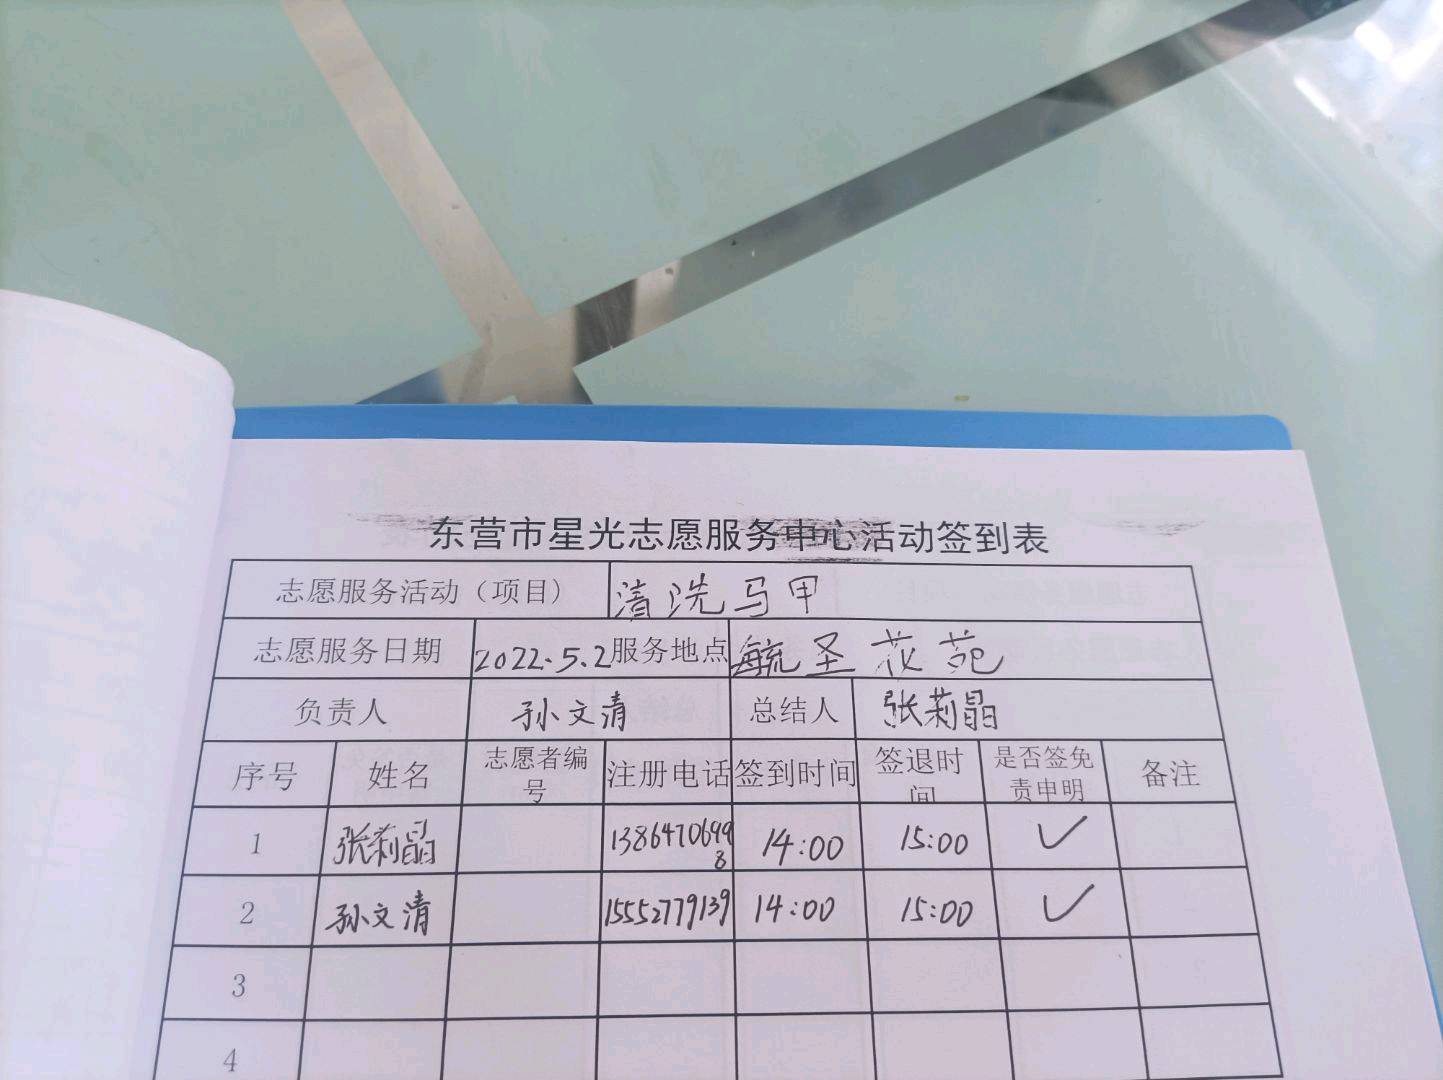 东营市星光志愿服务中心活动签到表
志愿服务活动（项目） 清洗马甲
志愿服务日期 2022.5.2 服务地点 毓圣花苑
负责人 孙文清 总结人 张莉晶
序号 姓名 志愿者编号 注册电话 签到时间 签退时间 是否签免责申明 备注
1 张莉晶 13864706998 14:00 15:00 ✓
2 孙文清 15552779139 14:00 15:00 ✓
3
4